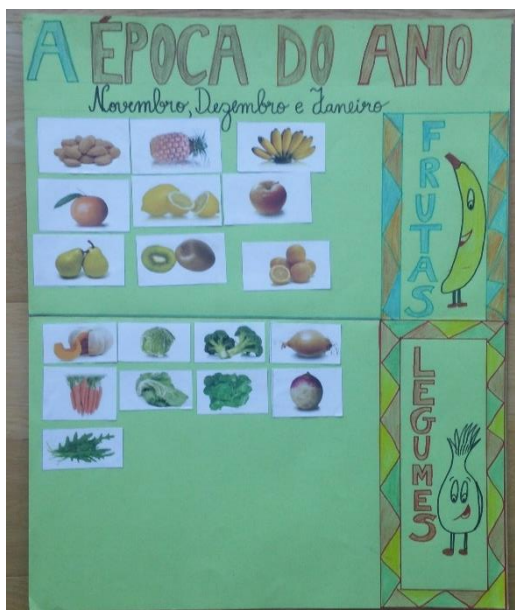 A ÉPOCA DO ANO
Novembro, Dezembro e Janeiro
FRUTAS
LEGUMES